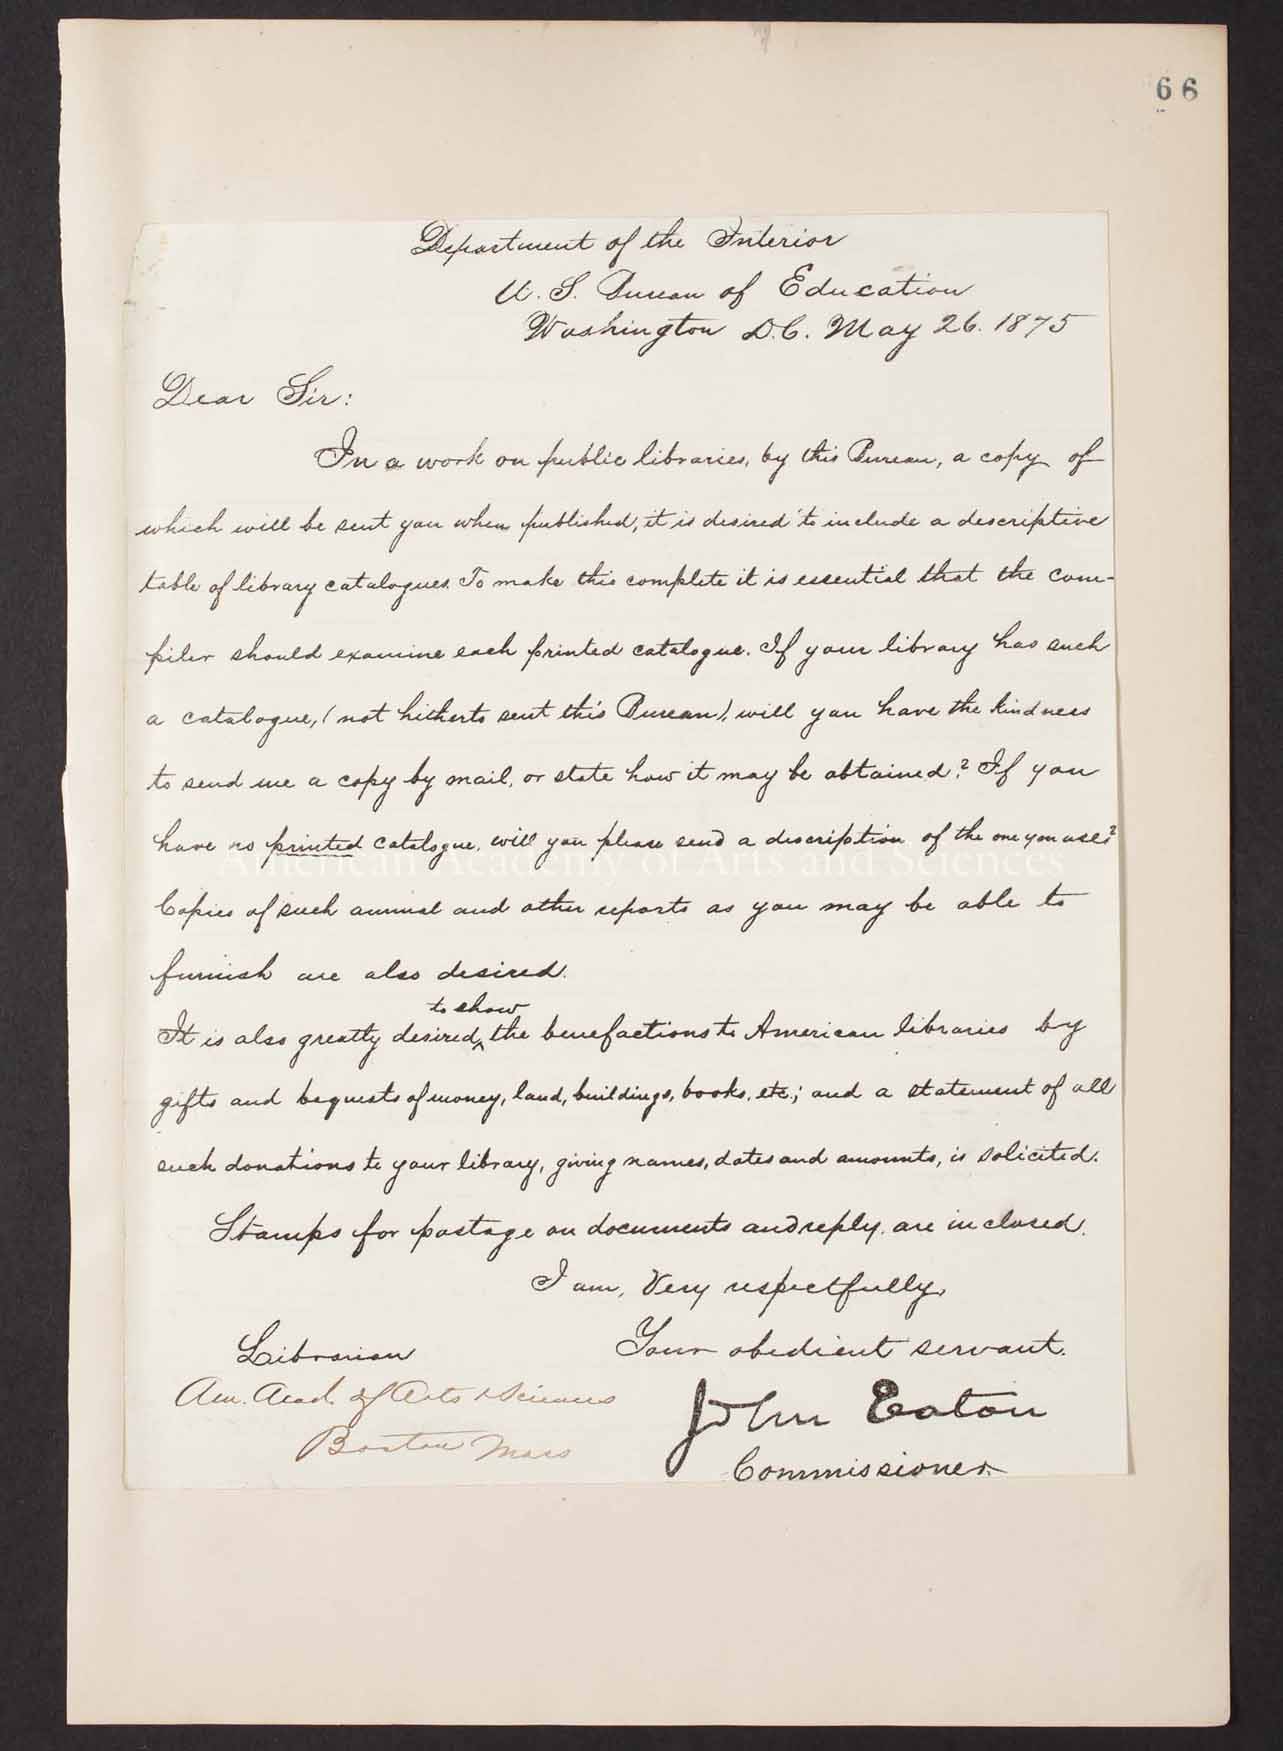 66
Department of the Interior
U. S. Bureau of Education
Washington D.C. May 26. 1875
Dear Sir:
In a work on public libraries, by this Bureau, a copy of
which will be sent you when published, it is desired to include a descriptive
table of library catalogues. To make this complete it is essential that the com-
piler should examine each printed catalogue. If your library has such
a catalogue, (not hitherto sent this Bureau), will you have the kindness
to send me a copy by mail, or state how it may be obtained? If you
have no printed catalogue, will you please send a description of the one you use?
American Academy of Arts and Sciences
Copies of such annual and other reports as you may be able to
furnish are also desired.
to show
It is also greatly desired ^ the benefactions to American libraries by
gifts and bequests of money, land, buildings, books, etc; and a statement of all
such donations to your library, giving names, dates and amounts, is solicited.
Stamps for postage on documents and reply, are inclosed.
I am, Very respectfully,
Your obedient servant.
Librarian
Am. Acad. of Arts & Sciences
Boston Mass
John Eaton
Commissioner.